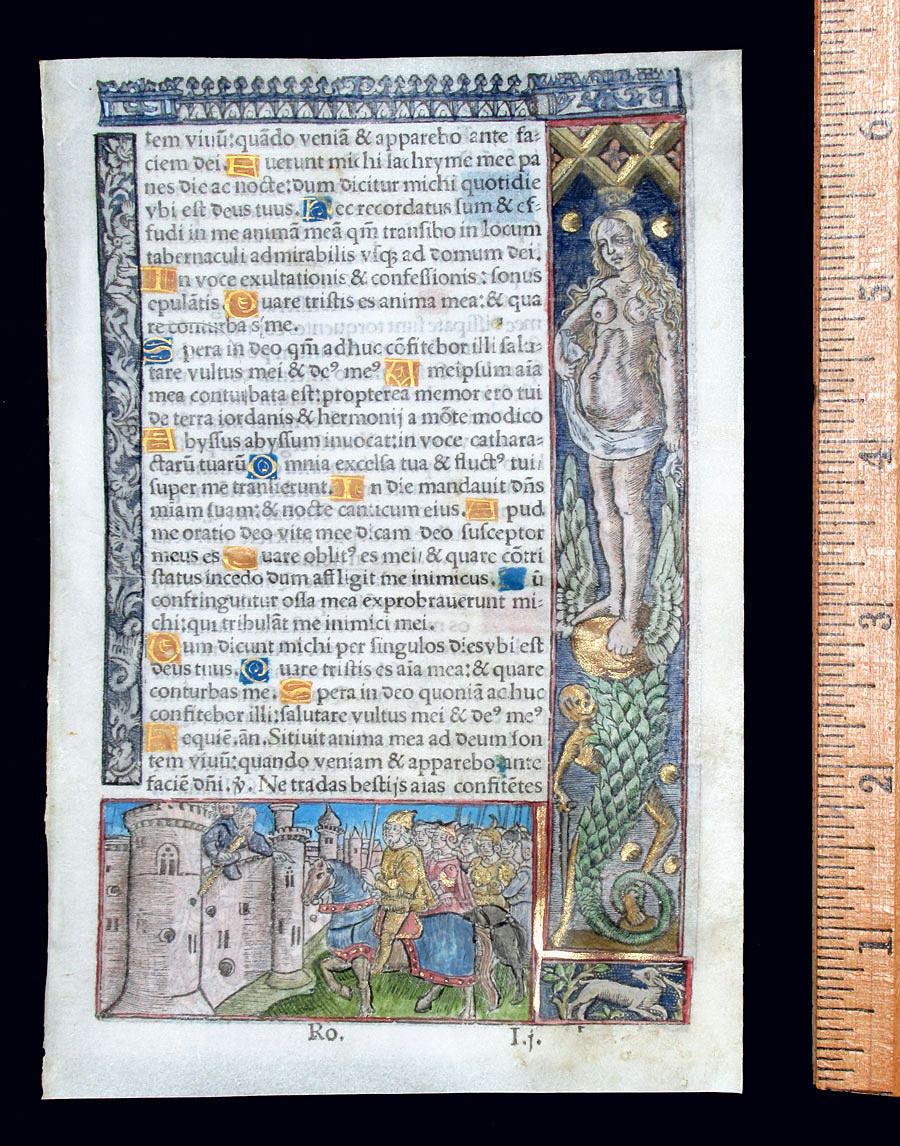 tem viuū:quādo veniā & apparebo ante fa:
ciem dei. Fuerunt michi lachryme mee pa
nes die ac nocte:dum dicitur michi quotidie
vbi est deus tuus. Hec recordatus sum & ef-
fudi in me animā meā qm̄ transibo in locum
tabernaculi admirabilis vsq; ad domum dei.
In voce exultationis & confessionis: sonus
epulātis. Quare tristis es anima mea: & qua
re conturbas me.
Spera in deo qm̄ adhuc cōfitebor illi salu-
tare vultus mei & deꝰ meꝰ Ad meipsum aīa
mea conturbata est:propterea memor ero tui
de terra iordanis & hermonij a mōte modico
Abyssus abyssum inuocat:in voce cathara:
ctarū tuarū Omnia excelsa tua & fluctꝰ tui
super me transierunt. In die mandauit dn̄s
miam suam: & nocte canticum eius. Apud
me oratio deo vite mee dicam deo susceptor
meus es Quare oblitꝰ es mei & quare cōtri
status incedo dum affligit me inimicus. Dū
confringuntur ossa mea exprobrauerunt mi:
chi:qui tribulāt me inimici mei.
Dum dicunt michi per singulos dies vbi est
deus tuus. Quare tristis es aīa mea: & quare
conturbas me. Spera in deo quoniā adhuc
confitebor illi:salutare vultus mei & deꝰ meꝰ
Requiē. ān. Sitiuit anima mea ad deum fon
tem viuū:quando veniam & apparebo ante
faciē dn̄i. ꝟ. Ne tradas bestijs aīas confitētes
Ro. I.j.
6
5
4
3
2
1